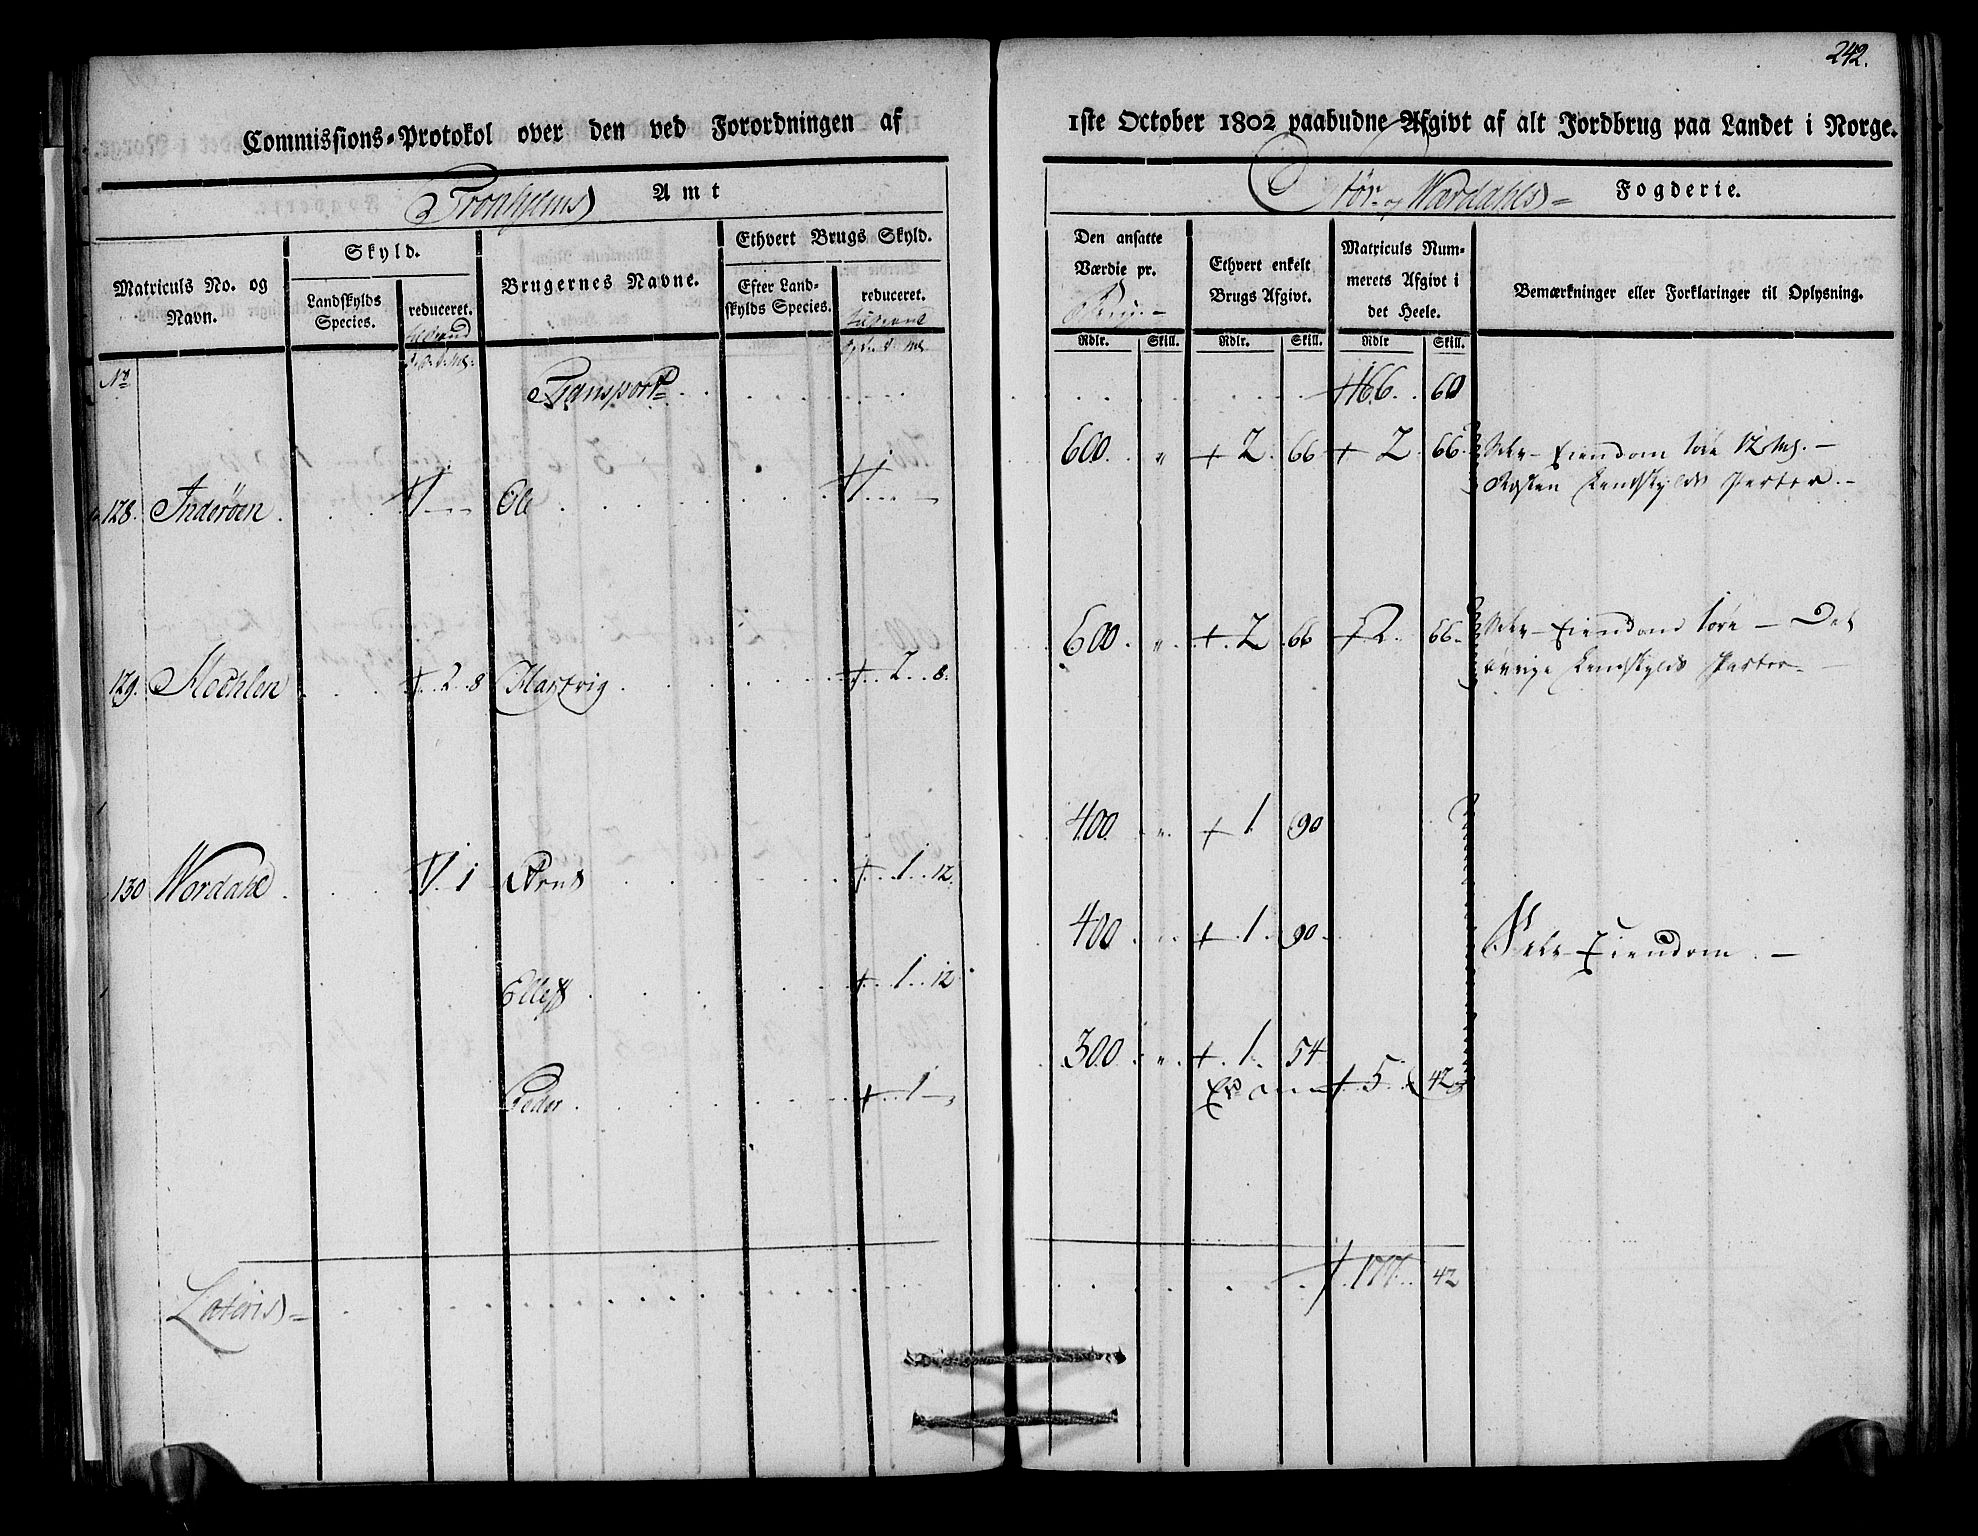 242.
Commissions-Protokol over den ved Forordningen af 1ste October 1802 paabudne Afgivt af alt Jordbrug paa Landet i Norge.
Tronhjems Amt
Stør- og Wærdahls Fogderie.
Matriculs No. og Navn.
Skyld.
Landskylds Species.
reduceret.
Brugernes Navne.
Ethvert Brugs Skyld.
Efter Landskylds Species.
reduceret.
Den ansatte Værdie pr.
Ethvert enkelt Brugs Afgivt.
Matriculs Nummerets Afgivt i det Heele.
Bemærkninger eller Forklaringer til Oplysning.
Rdlr. Skill. Rdlr. Skill. Rdlr Skill.
No
Transport 166. 60
128. Inderøen 1 Ole 1 600 " 2 66 2 66 Selv-Eiendom 12
Landskylds Parter.
129. Moehlen 2 8 Hartvig 2 8. 600 " 2 66 2 66 Selv-Eiendom Det
øvrige Landskylds Parter
130 Wordahl 1 1 Arnt 1 12. 400 " 1 90
Ellef 1 12 400 1 90 Selv-Eiendom.
Peder 1 300 " 1 54
5 42
Lateris 177 42